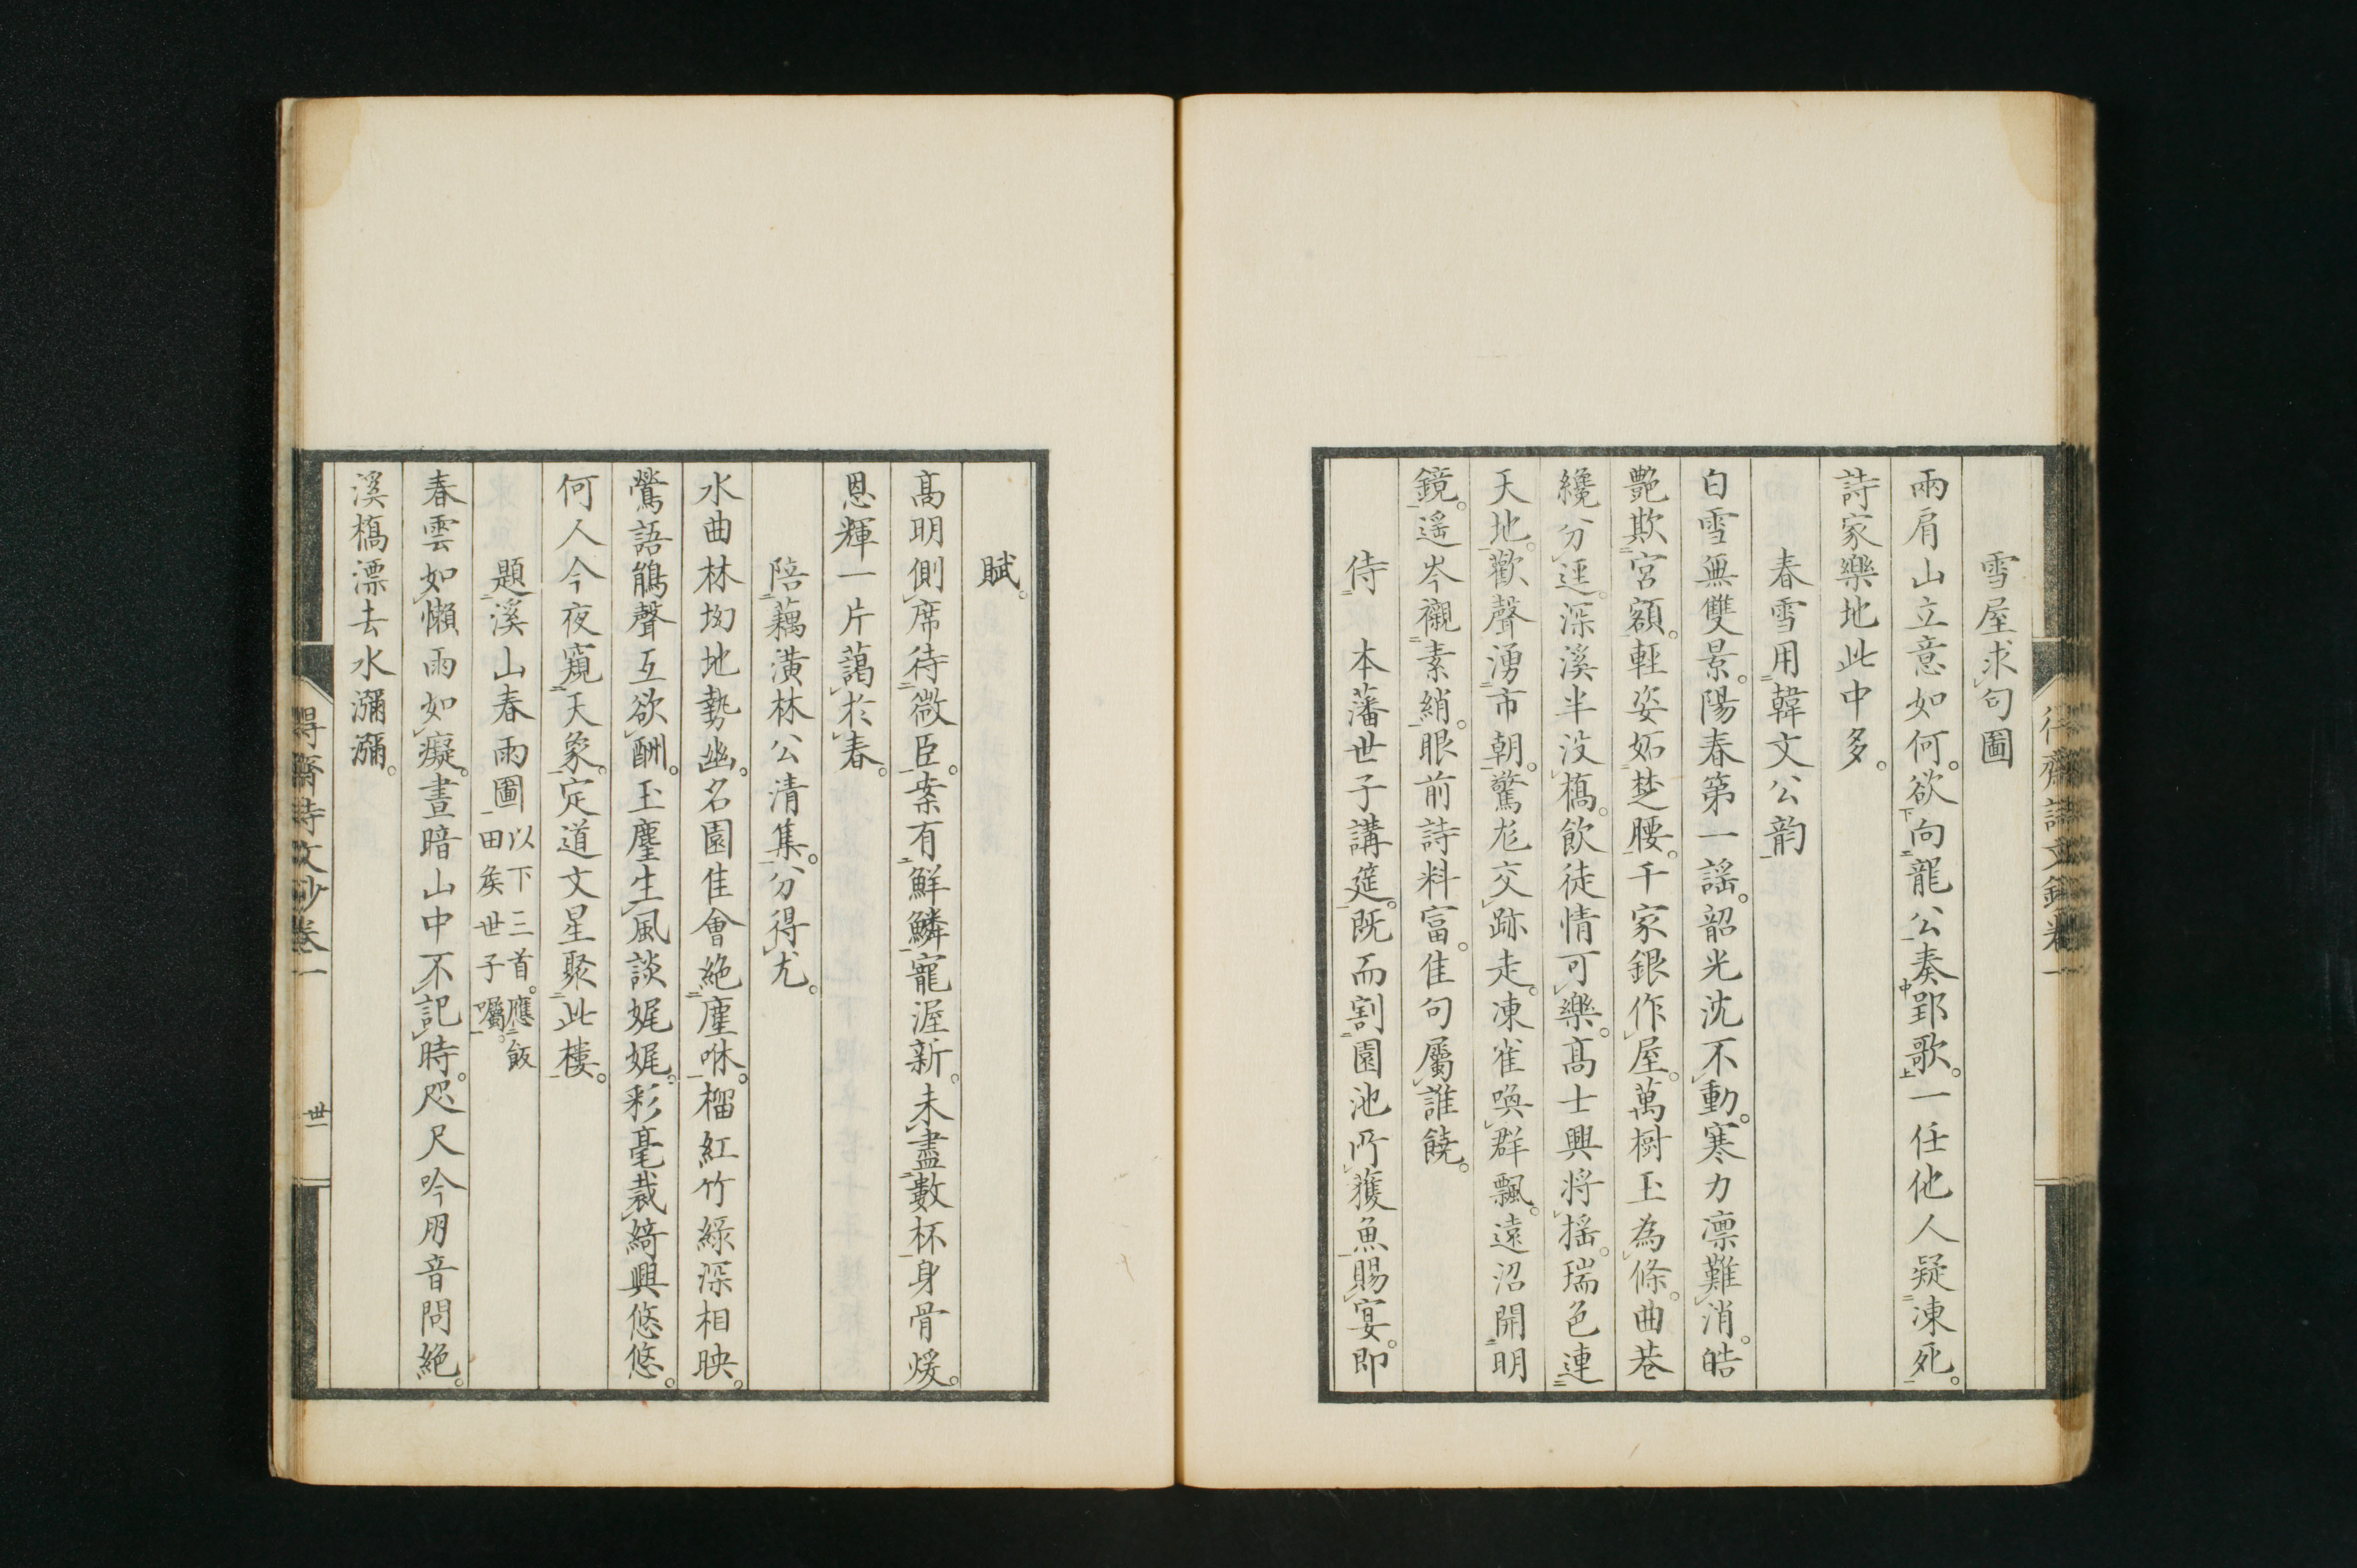 雪屋求句圖
兩肩山立意如何。欲向龍公奏郢歌。一任他人疑凍死。
詩家樂地此中多。
春雪用韓文公韵
白雪無雙景。陽春第一謠。韶光沈不動。寒力凛難消。皓
艷欺宮額。輕姿妬楚腰。千家銀作屋。萬樹玉為條。曲巷
纔分逕。深溪半沒橋。飲徒情可樂。高士興將搖。瑞色連
天地。歡聲湧市朝。驚尨交跡走。凍雀喚群飄。遠沼開明
鏡。遥岑襯素綃。眼前詩料富。佳句屬誰饒。
侍 本藩世子講筵。既而割園池所獲魚賜宴。即
賦。
高明側席待微臣。案有鮮鱗寵渥新。未盡數杯身骨煖。
恩輝一片藹於春。
陪藕潢林公清集。分得尤。
水曲林坳地勢幽。名園佳會絶塵咻。榴紅竹綠深相映。
鶯語鵑聲互欲酬。玉麈生風談娓娓。彩毫裁綺興悠悠。
何人今夜窺天象。定道文星聚此樓。
題溪山春雨圖 以下三首。應飯田矦世子囑。
春雲如懶雨如癡。晝暗山中不記時。咫尺吟朋音問絶。
溪橋漂去水瀰瀰。
得齋詩文鈔卷一
卅一